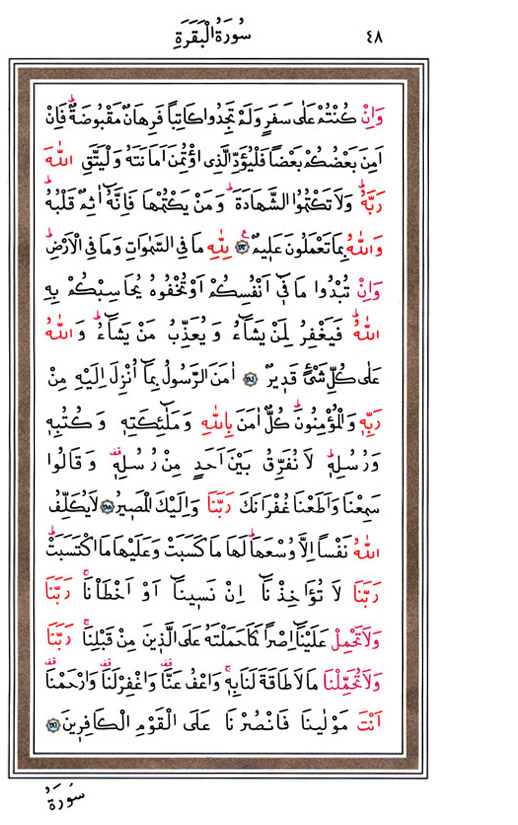 سُورَةُ الْبَقَرَةِ ٤٨
وَاِنْ كُنْتُمْ عَلٰى سَفَرٍ وَلَمْ تَجِدُوا كَاتِباً فَرِهَانٌ مَقْبُوضَةٌۜ فَاِنْ
اَمِنَ بَعْضُكُمْ بَعْضاً فَلْيُؤَدِّ الَّذِي اؤْتُمِنَ اَمَانَتَهُ وَلْيَتَّقِ اللّٰهَ
رَبَّهُۜ وَلَا تَكْتُمُوا الشَّهَادَةَۜ وَمَنْ يَكْتُمْهَا فَاِنَّهُٓ اٰثِمٌ قَلْبُهُۜ
وَاللّٰهُ بِمَا تَعْمَلُونَ عَل۪يمٌ۟ ﴿٢٨٣﴾ لِلّٰهِ مَا فِي السَّمٰوَاتِ وَمَا فِي الْاَرْضِۜ
وَاِنْ تُبْدُوا مَا ف۪ٓي اَنْفُسِكُمْ اَوْ تُخْفُوهُ يُحَاسِبْكُمْ بِهِ
اللّٰهُۜ فَيَغْفِرُ لِمَنْ يَشَٓاءُ وَيُعَذِّبُ مَنْ يَشَٓاءُۜ وَاللّٰهُ
عَلٰى كُلِّ شَيْءٍ قَد۪يرٌ ﴿٢٨٤﴾ اٰمَنَ الرَّسُولُ بِمَٓا اُنْزِلَ اِلَيْهِ مِنْ
رَبِّه۪ وَالْمُؤْمِنُونَۜ كُلٌّ اٰمَنَ بِاللّٰهِ وَمَلٰٓئِكَتِه۪ وَكُتُبِه۪
وَرُسُلِه۪ۜ لَا نُفَرِّقُ بَيْنَ اَحَدٍ مِنْ رُسُلِه۪۠ وَقَالُوا
سَمِعْنَا وَاَطَعْنَا غُفْرَانَكَ رَبَّنَا وَاِلَيْكَ الْمَص۪يرُ ﴿٢٨٥﴾ لَا يُكَلِّفُ
اللّٰهُ نَفْساً اِلَّا وُسْعَهَاۜ لَهَا مَا كَسَبَتْ وَعَلَيْهَا مَا اكْتَسَبَتْۜ
رَبَّنَا لَا تُؤَاخِذْنَٓا اِنْ نَس۪ينَٓا اَوْ اَخْطَأْنَاۚ رَبَّنَا
وَلَا تَحْمِلْ عَلَيْنَٓا اِصْراً كَمَا حَمَلْتَهُ عَلَى الَّذ۪ينَ مِنْ قَبْلِنَاۚ رَبَّنَا
وَلَا تُحَمِّلْنَا مَا لَا طَاقَةَ لَنَا بِه۪ۚ وَاعْفُ عَنَّا۠ وَاغْفِرْ لَنَا۠ وَارْحَمْنَا۠
اَنْتَ مَوْلٰينَا فَانْصُرْنَا عَلَى الْقَوْمِ الْكَافِر۪ينَ ﴿٢٨٦﴾
سُورَةُ